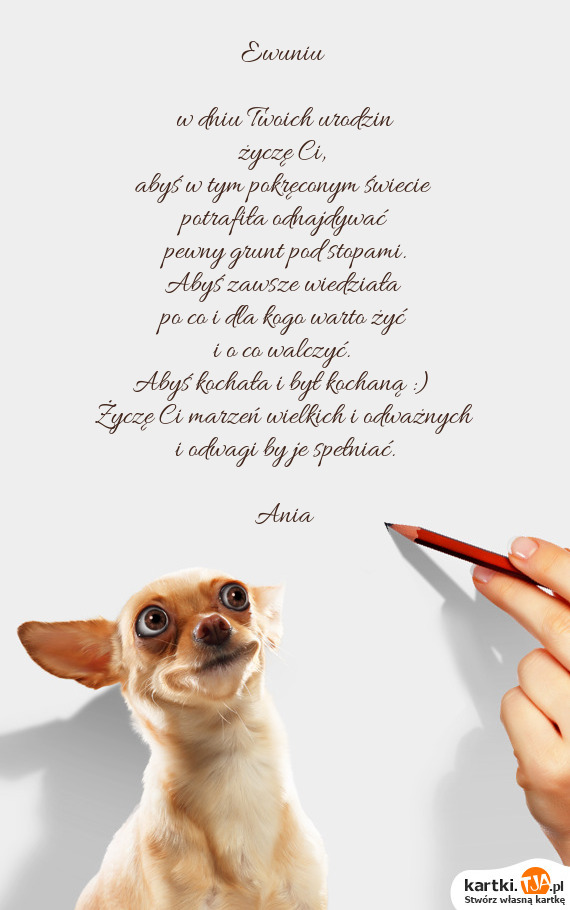 Ewuniu
w dniu Twoich urodzin
życzę Ci,
abyś w tym pokręconym świecie
potrafiła odnajdywać
pewny grunt pod stopami.
Abyś zawsze wiedziała
po co i dla kogo warto żyć
i o co walczyć.
Abyś kochała i był kochaną :)
Życzę Ci marzeń wielkich i odważnych
i odwagi by je spełniać.
Ania
kartki.TJA.pl
Stwórz własną kartkę